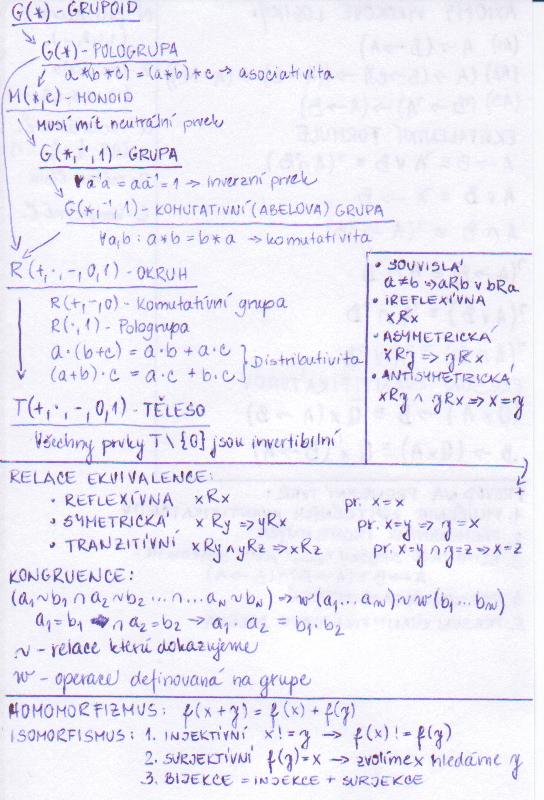 G(*) - GRUPOID
G(*) - POLOGRUPA
a*(b*c) = (a*b)*c → asociativita
M(*,e) - MONOID
Musí mít neutrální prvek
G(*,⁻¹,1) - GRUPA
∀a⁻¹a = aa⁻¹ = 1 → inverzní prvek
G(*,⁻¹,1) - KOMUTATIVNÍ (ABELOVA) GRUPA
∀a,b : a*b = b*a → komutativita
R(+,·,-,0,1) - OKRUH
R(+,-,0) - Komutativní grupa
R(·,1) - Pologrupa
a·(b+c) = a·b + a·c
(a+b)·c = a·c + b·c } Distributivita
T(+,·,-,0,1) - TĚLESO
Všechny prvky T\{0} jsou invertibilní
• SOUVISLÁ
a≠b ⇒ aRb ∨ bRa
• IREFLEXÍVNA
xR̸x
• ASYMETRICKÁ
xRy ⇒ yR̸x
• ANTISYMETRICKÁ
xRy ∧ yRx ⇒ x=y
RELACE EKVIVALENCE:
• REFLEXÍVNA xRx Př. x=x
• SYMETRICKÁ xRy → yRx př. x=y ⇒ y=x
• TRANZITÍVNÍ xRy ∧ yRz ⇒ xRz př. x=y ∩ y=z ⇒ x=z
KONGRUENCE:
(a₁~b₁ ∩ a₂~b₂ ... ∩ ... aₙ~bₙ) ⇒ w(a₁...aₙ) ~ w(b₁...bₙ)
a₁=b₁ ∩ a₂=b₂ → a₁·a₂ = b₁·b₂
~ - relace kterú dokazujeme
w - operace definovaná na grupe
HOMOMORFIZMUS: f(x+y) = f(x) + f(y)
ISOMORFISMUS: 1. INJEKTÍVNÍ x != y → f(x) != f(y)
2. SURJEKTÍVNÍ f(y)=x → zvolíme x hledáme y
3. BIJEKCE = INJEKCE + SURJEKCE